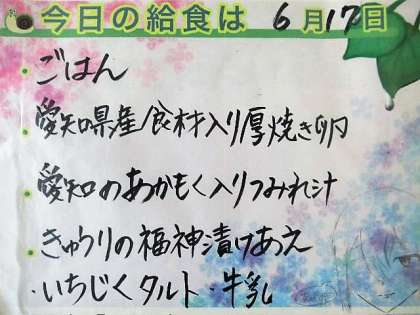 今日の給食は 6月17日
・ごはん
・愛知県産食材入り厚焼き卵
・愛知のあかもく入りつみれ汁
・きゅうりの福神漬けあえ
・いちじくタルト・牛乳